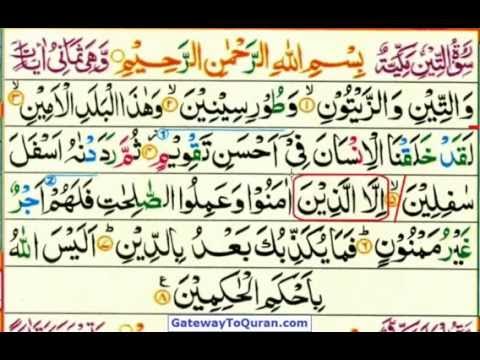 سُوْرَةُ التِّيْنِ مَكِّيَّةٌ بِسْمِ اللهِ الرَّحْمٰنِ الرَّحِيْمِ وَّهِيَ ثَمَانِيْ اٰيَاتٍ
وَالتِّيْنِ وَالزَّيْتُوْنِ ۙ۱ وَطُوْرِ سِيْنِيْنَ ۙ۲ وَهٰذَا الْبَلَدِ الْاَمِيْنِ ۙ۳
لَقَدْ خَلَقْنَا الْاِنْسَانَ فِيْٓ اَحْسَنِ تَقْوِيْمٍ ۴ ثُمَّ رَدَدْنٰهُ اَسْفَلَ
سٰفِلِيْنَ ۙ۵ اِلَّا الَّذِيْنَ اٰمَنُوْا وَعَمِلُوا الصّٰلِحٰتِ فَلَهُمْ اَجْرٌ
غَيْرُ مَمْنُوْنٍ ؕ۶ فَمَا يُكَذِّبُكَ بَعْدُ بِالدِّيْنِ ؕ۷ اَلَيْسَ اللهُ
بِاَحْكَمِ الْحٰكِمِيْنَ ۸ ع
GatewayToQuran.com